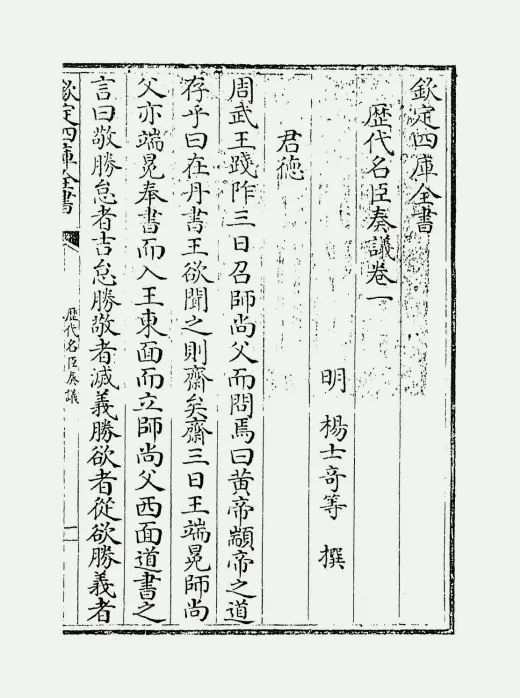 欽定四庫全書
歴代名臣奏議卷一
明 楊士奇等 撰
君德
周武王踐阼三日召師尚父而問焉曰黄帝顓帝之道
存乎曰在丹書王欲聞之則齋矣齋三日王端冕師尚
父亦端冕奉書而入王東面而立師尚父西面道書之
言曰敬勝怠者吉怠勝敬者滅義勝欲者從欲勝義者
欽定四庫全書
歴代名臣奏議
一